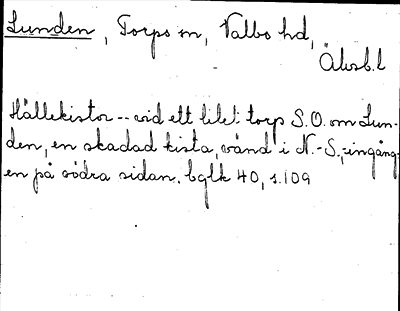 Lunden, Torps sn, Valbo hd,
Älvsb. l
Hällekistor -- vid ett litet torp S.O. om Lun-
den, en skadad kista, vänd i N.-S., ingång-
en på södra sidan. bglk 40, s. 109